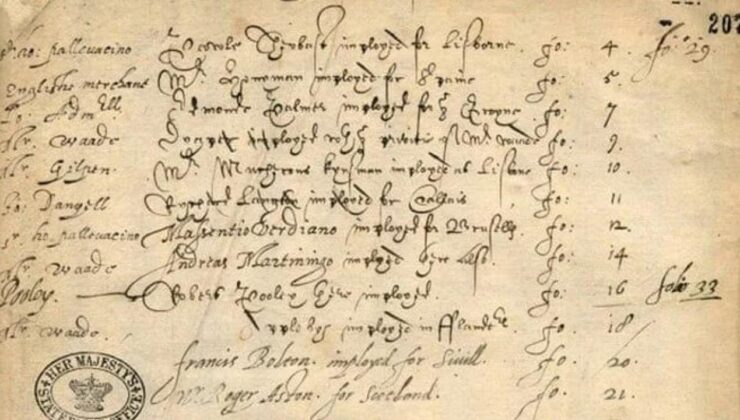 207
ho: pallevacino employed for Lisborne. fo: 4 fo: 29
Englishe merchant Mr imployed for Spaine fo: 5.
Lo: Adm: Edmonde Palmer imployed for fo: 7
Mr. Waade imployed Mr fo: 9.
Mr. Gilpen. Mr. kynsman imployed at Lisbone fo: 10.
Lo: Dangell imployed for Callais fo: 11
Sr ho pallevacino Massentio Verdiano imployed for Brusells fo: 12.
Mr. Waade Andreas Martiningo imployed here also. fo: 14
Pooley. Robert Pooley here imployed. fo: 16 folio 33
Mr. Waade. imployed in fflanders. fo: 18
francis Bolton. imployed for Sivill. fo: 20.
Mr. Roger Aston. for Scotland. fo: 21.
HER MAJESTY'S STATE PAPER OFFICE